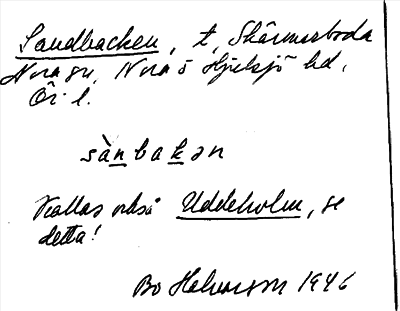 Sandbacken, t, Skärmarboda
Nora sn, Nora o Hjulsjö hd,
Ör l.
sànbakən
Kallas också Uddeholm, se
detta!
Bo Halvarson 1946